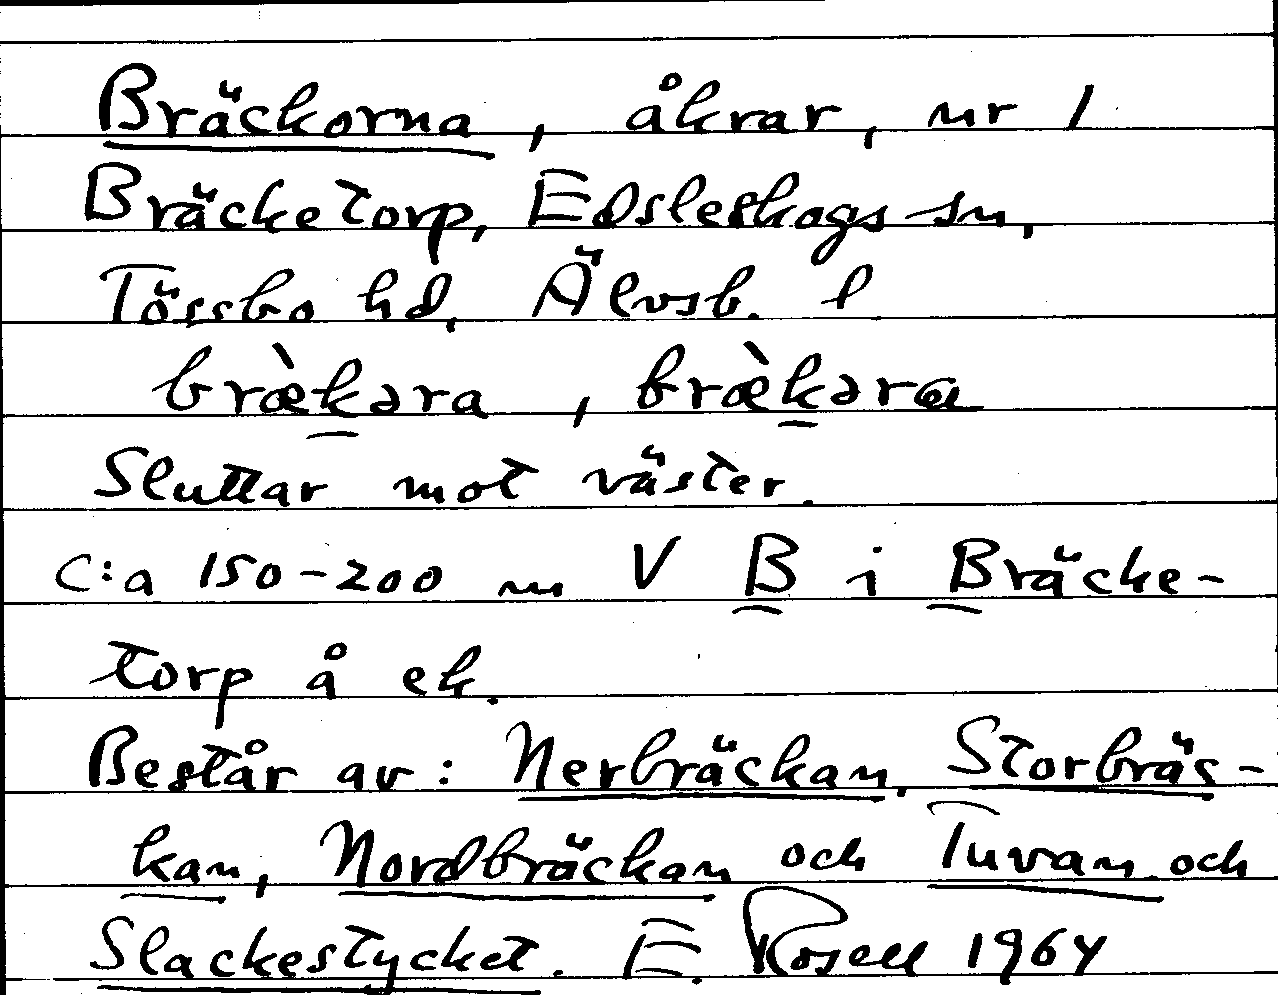 Bräckorna, åkrar, nr 1
Bräcketorp, Edsleskogs sn,
Tössbo hd, Älvsb. l
bræ̀kara, bræ̀kara
Sluttar mot väster.
C:a 150-200 m V B i Bräcke-
torp å ek.
Består av: Nerbräckan, Storbräc-
kan, Nordbräckan och Tuvan och
Slackestycket. E. Rosell 1964